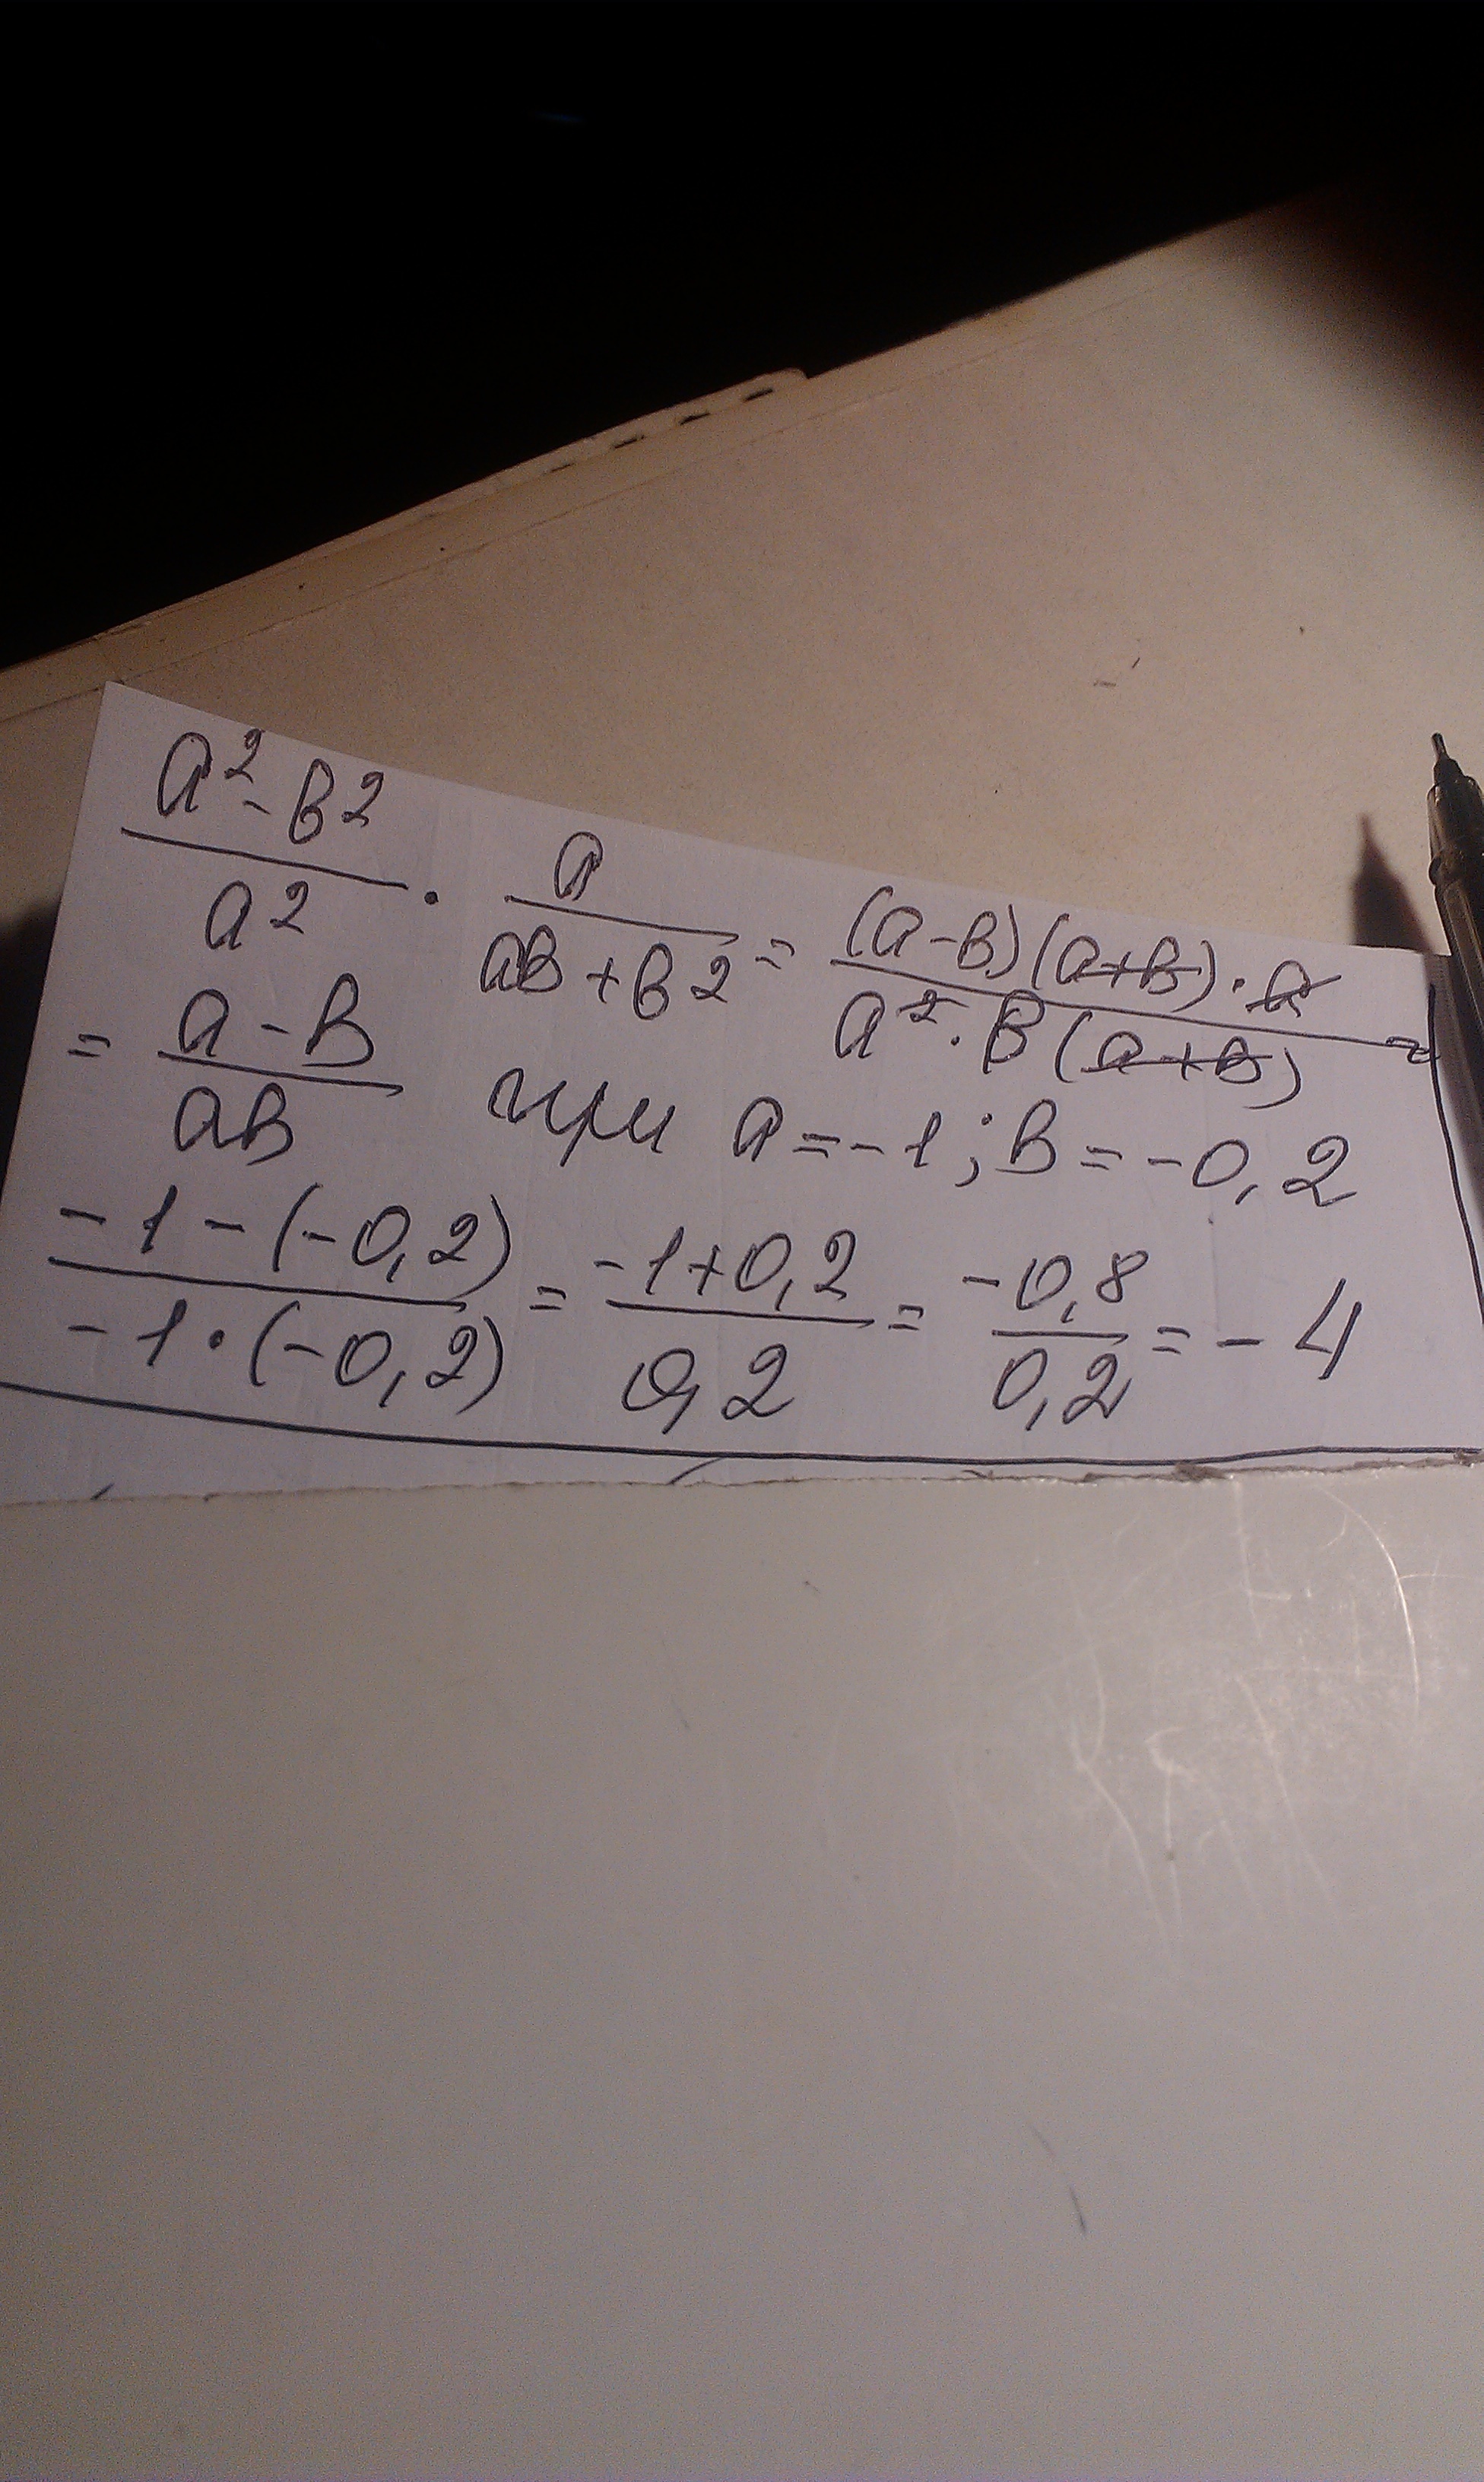 (a² - в²)/a² · a/(aв + в²) = ((a - в)(a + в) · a)/(a² · в(a + в)) =
= (a - в)/(aв) при a = -1; в = -0,2
(-1 - (-0,2))/(-1 · (-0,2)) = (-1 + 0,2)/0,2 = -0,8/0,2 = -4